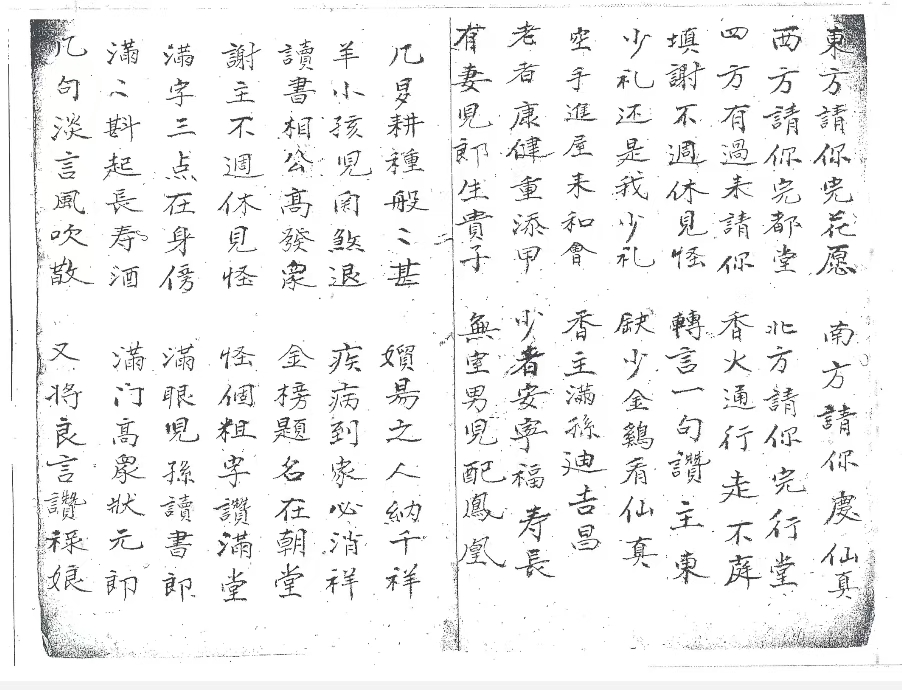 東方請你完花愿 南方請你慶仙真
西方請你完都堂 北方請你完行堂
四方有過来請你 香火通行走不庭
填謝不週休見怪 轉言一句讚主東
少礼还是我少礼 缺少金鷄看仙真
空手進屋来和會 香主滿孫迪吉昌
老者康健重添甲 少者安寧福寿長
有妻児郎生貴子 無室男児配鳳凰
几 耕種般〻甚 之人納千祥
羊小孩児関煞退 疾病到家必消祥
讀書相公高發衆 金榜題名在朝堂
謝主不週休見怪 怪個粗字讚滿堂
滿字三点在身傍 滿眼児孫讀書郎
滿〻斟起長寿酒 滿门高衆狀元郎
几句淡言風吹散 又将良言讚禄娘